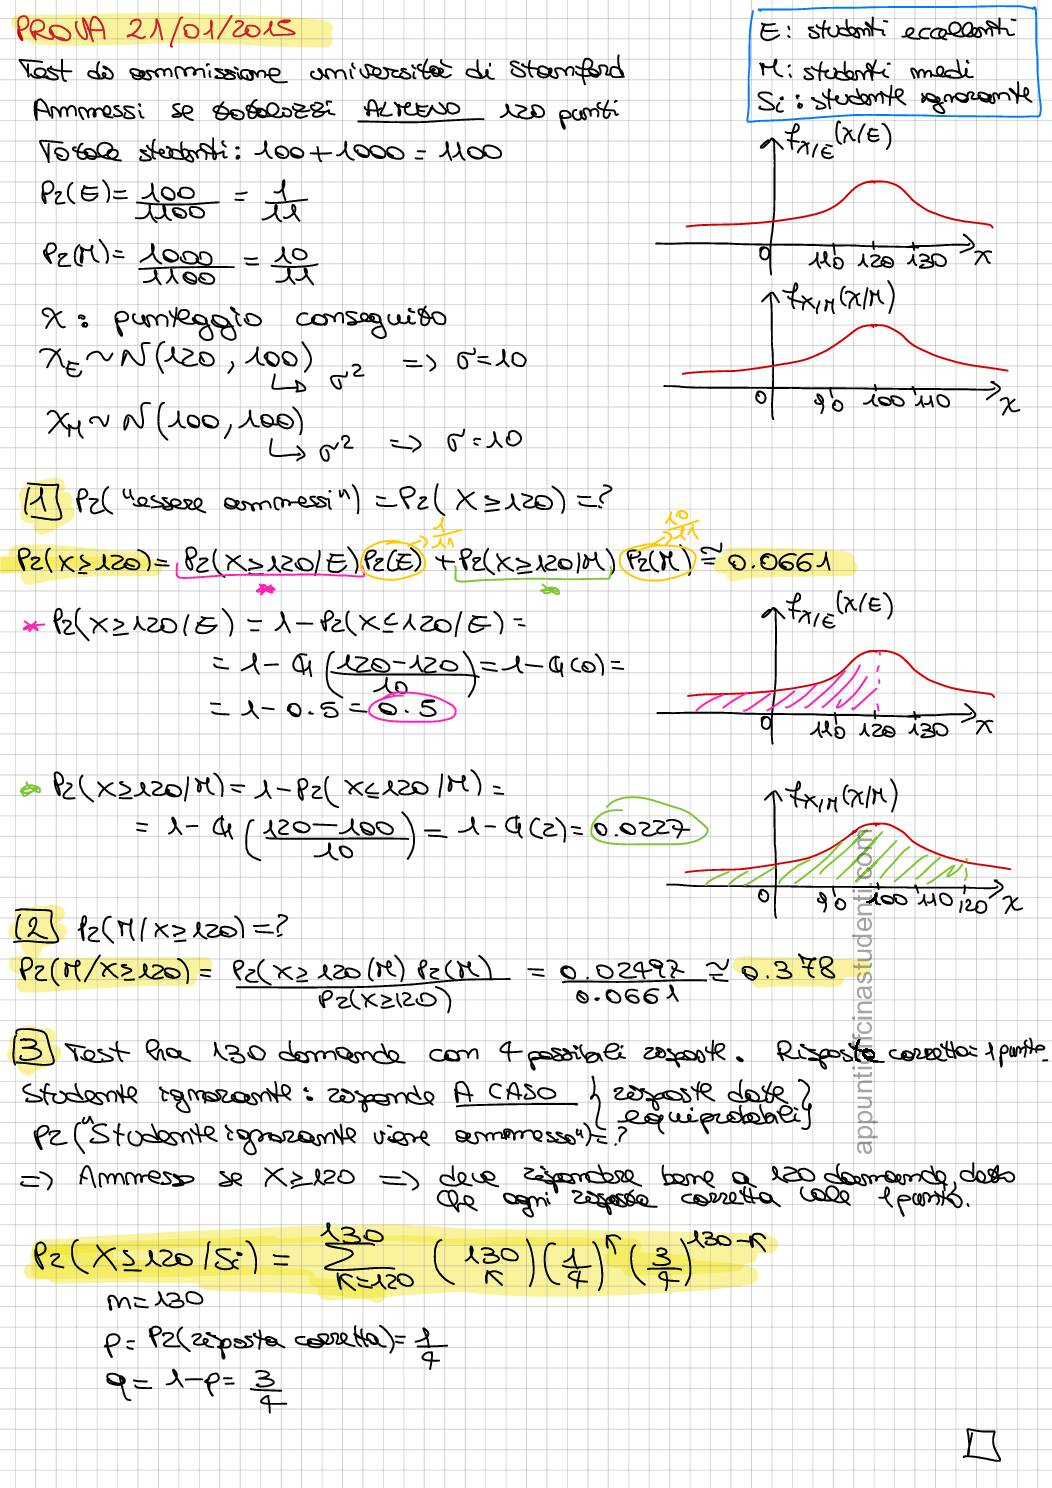 PROVA 21/01/2015
E: studenti eccellenti
M: studenti medi
Si: studente ignorante
Test di ammissione università di Stamford
Ammessi se totalizzi ALMENO 120 punti
Totale studenti: 100+1000=1100
Pr(E)= 100/1100 = 1/11
Pr(M)= 1000/1100 = 10/11
X: punteggio conseguito
X_E ~ N(120, 100) => σ=10
↳ σ²
X_M ~ N(100, 100) => σ=10
↳ σ²
f_X/E (X/E)
0 110 120 130 x
f_X/M (X/M)
0 90 100 110 x
1 Pr("essere ammessi")=Pr(X≥120)=?
1/11 10/11
Pr(X≥120)= Pr(X≥120/E)Pr(E)+Pr(X≥120/M)Pr(M)≅0.0661
* Pr(X≥120/E)=1-Pr(X≤120/E)=
= 1- G((120-120)/10)=1-G(0)=
= 1-0.5=0.5
f_X/E (X/E)
0 110 120 130 x
* Pr(X≥120/M)=1-Pr(X≤120/M)=
= 1- G((120-100)/10)= 1-G(2)=0.0227
f_X/M (X/M)
0 90 100 110 120 x
2 Pr(M/X≥120)=?
Pr(M/X≥120)= Pr(X≥120/M) Pr(M)/Pr(X≥120) = 0.02497/0.0661 ≅ 0.378
3 Test ha 130 domande con 4 possibili risposte. Risposta corretta=1 punto
Studente ignorante: risponde A CASO {risposte date equiprobabili}
Pr("Studente ignorante viene ammesso")=?
=> Ammesso se X≥120 => deve rispondere bene a 120 domande, dato
che ogni risposta corretta vale 1 punto.
Pr(X≥120/Si) = ∑_{K=120}^{130} (130 K)(1/4)^K (3/4)^{130-K}
n=130
p= Pr(risposta corretta)= 1/4
q= 1-p= 3/4
appuntiofficinastudenti.com